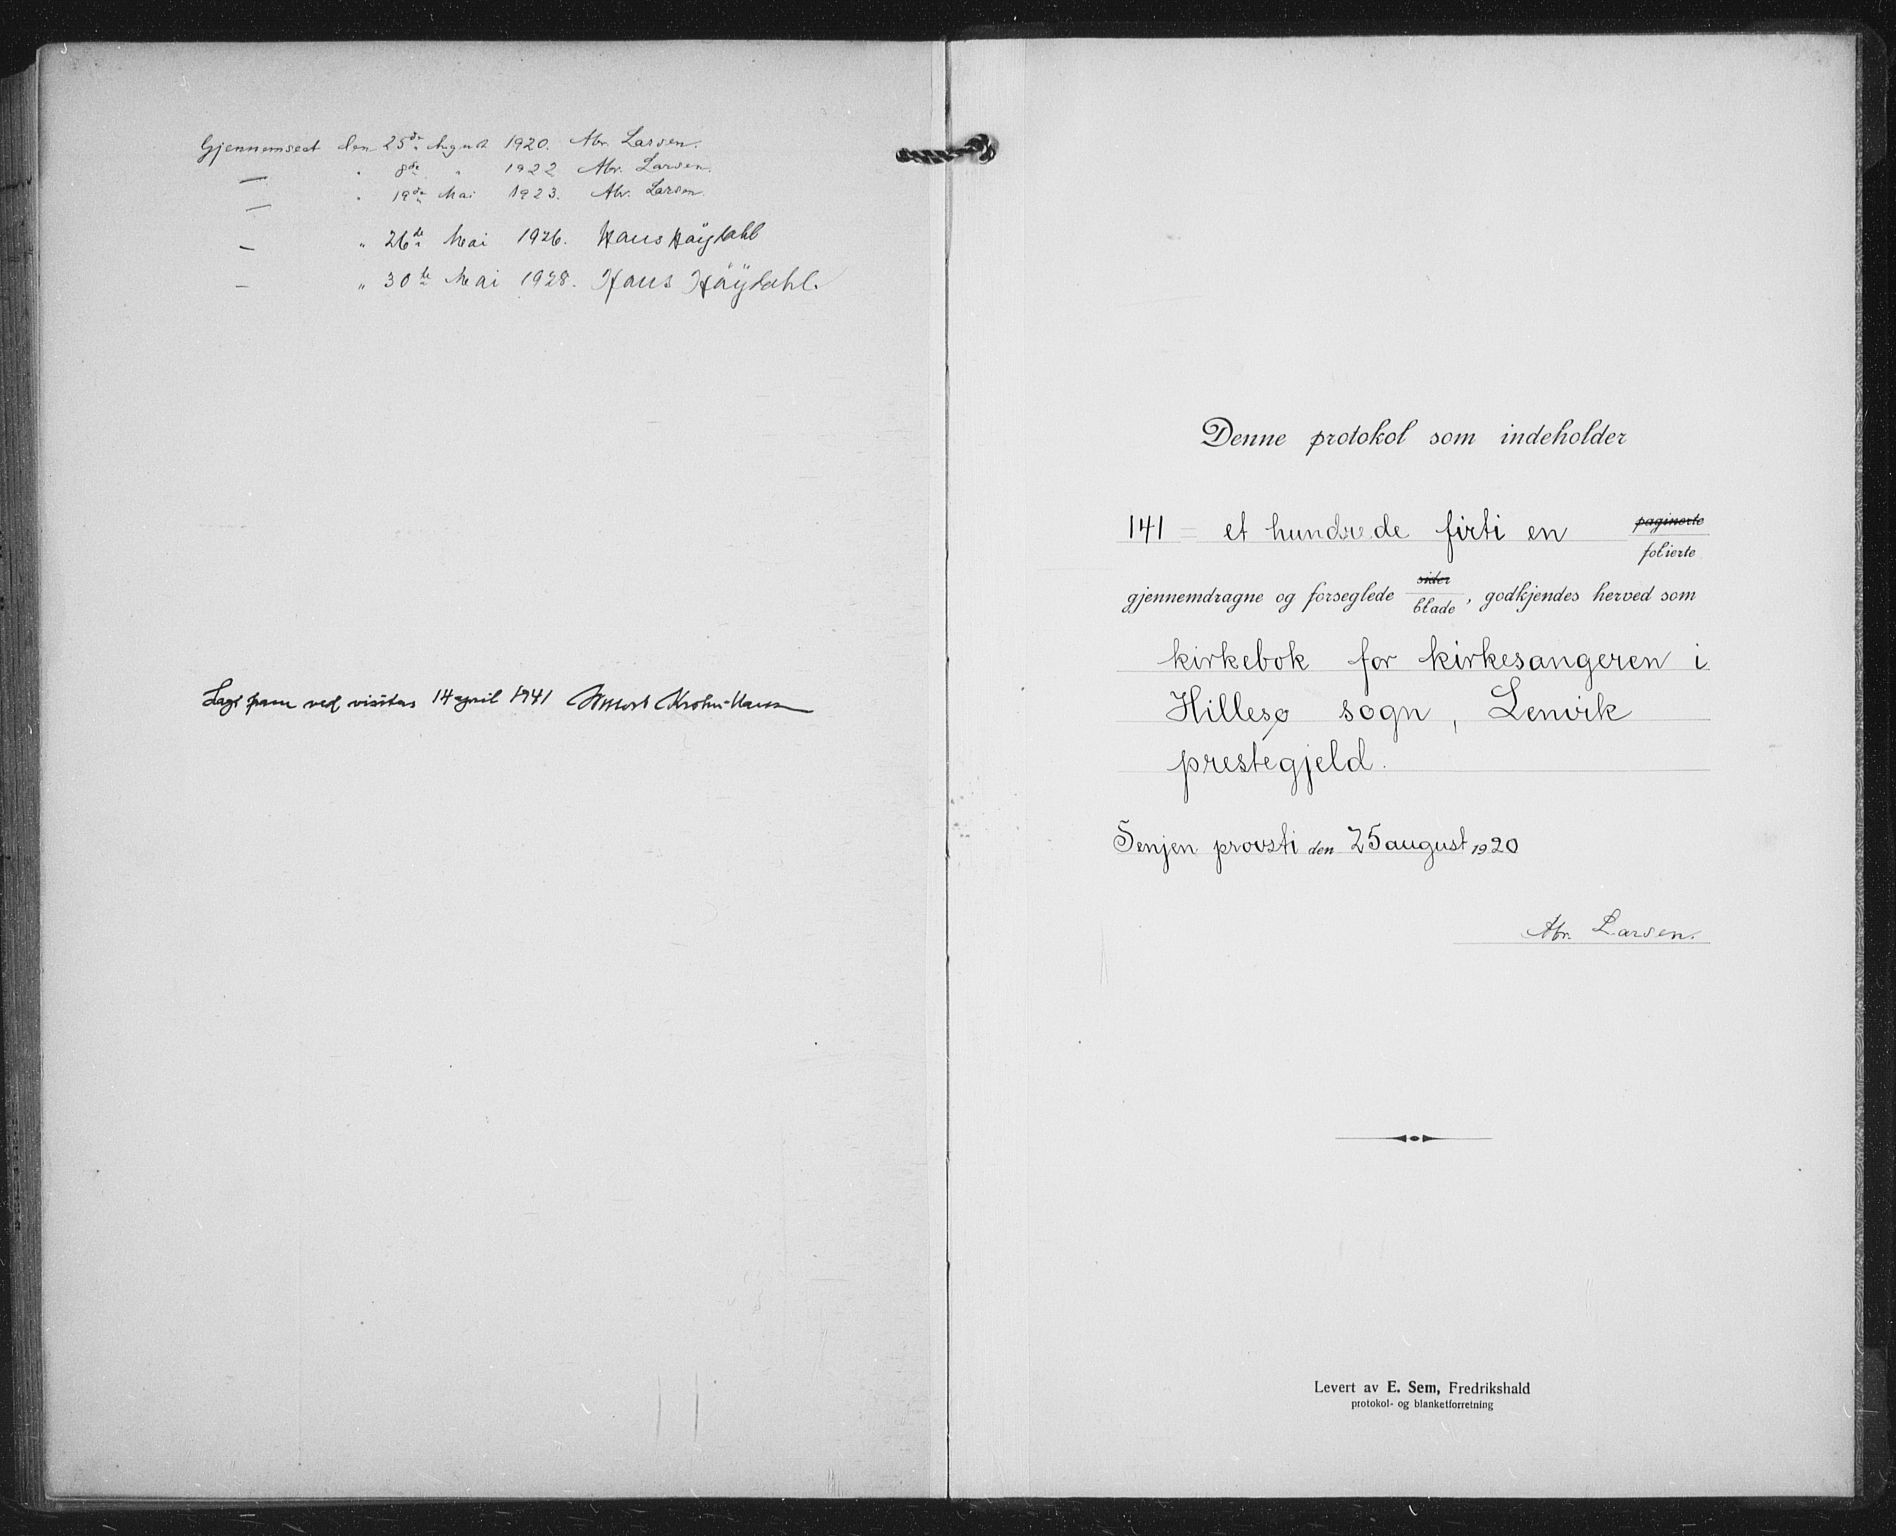 Gjennemseet den 25de August 1920. Abr. Larsen.
— " 8de " 1922 Abr. Larsen.
— " 19de Mai 1923. Abr. Larsen.
— " 26de Mai 1926. Hans Höydahl
— " 30te Mai 1928. Hans Höydahl.
Lagt fram ved visitas 14 april 1941 Krohn-Hansen
Denne protokol som indeholder
141 = et hundrede firti en paginerte
folierte
gjennemdragne og forseglede sider
blade, godkjendes herved som
kirkebok for kirkesangeren i
Hillesø sogn, Lenvik
prestegjeld.
Senjen provsti den 25 august 1920
Abr. Larsen.
Levert av E. Sem, Fredrikshald
protokol- og blanketforretning